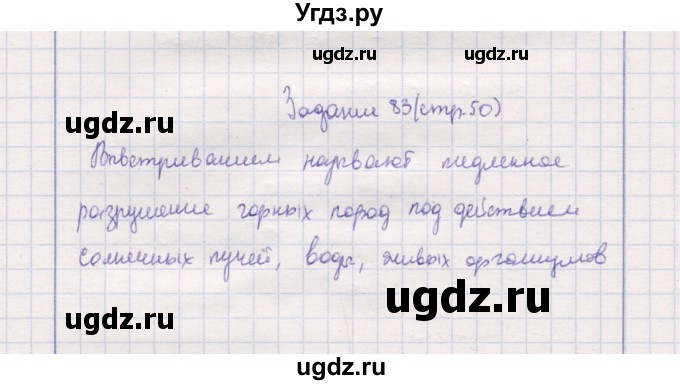 Угдз.ру
ugdz.ru ugdz.ru
Задание 83(стр.50)
ugdz.ru ugdz.ru
Выветриванием называют медленное
разрушение горных пород под действием
ugdz.ru ugdz.ru
солнечных лучей, воды, живых организмов
ugdz.ru ugdz.ru
ugdz.ru